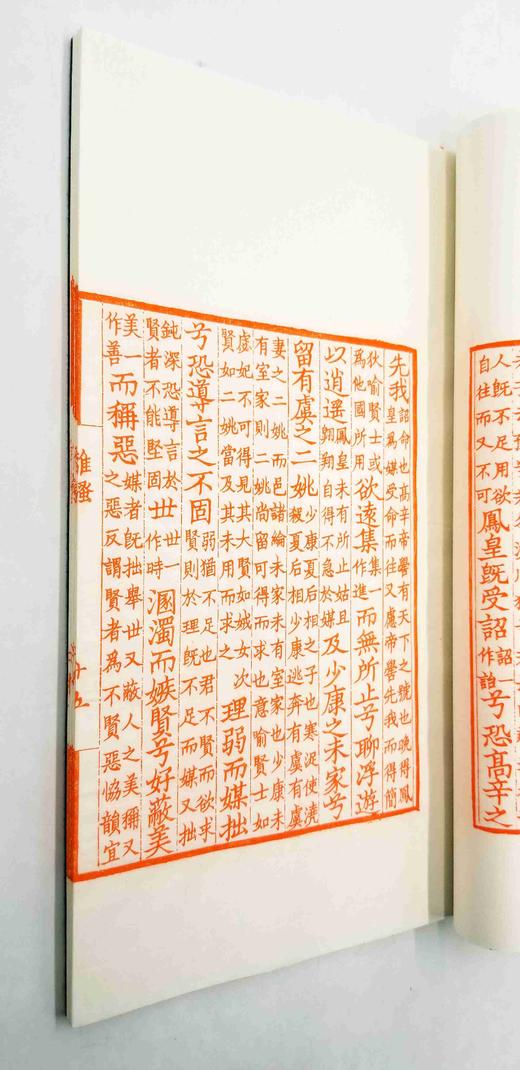 人既不足用欲自往而又不可鳳皇既受詔詔一作詒兮恐高辛之
先我詔命也高辛帝嚳有天下之號也晚得鳳皇爲媒受命而往又慮帝嚳先我而得簡
狄喻賢士或爲他國所用欲遠集集一作進而無所止兮聊浮遊
以逍遙鳳皇未有所止姑且翱翔自得不急於媒及少康之未家兮
留有虞之二姚少康夏后相之子也寒浞使澆殺夏后相少康逃奔有虞有虞
妻之二姚而邑諸綸未家未有室家也少康未有室家則二姚尚留可得而求也意喻賢士如
虙妃不可得見其大賢如娀女次賢如二姚當及其未用而求之理弱而媒拙
兮恐導言之不固弱猶不足也君不賢而欲求賢則於理既不足而媒又拙
鈍深恐導言於賢者不能堅固世世一作時溷濁而嫉賢兮好蔽美
美一作善而稱惡媒者既拙舉世又蔽人之美稱又之惡反謂賢者爲不賢惡恊韻宜
離騷
十五